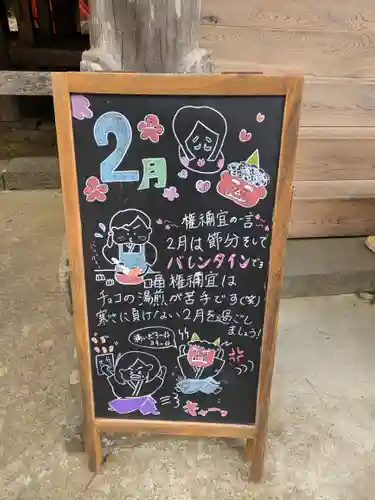 2月
権禰宜の一言
2月は節分そして
バレンタインです
権禰宜は
チョコの湯煎が苦手です(笑)
寒さに負けない2月を過ごし
ましょう!
キャーッ